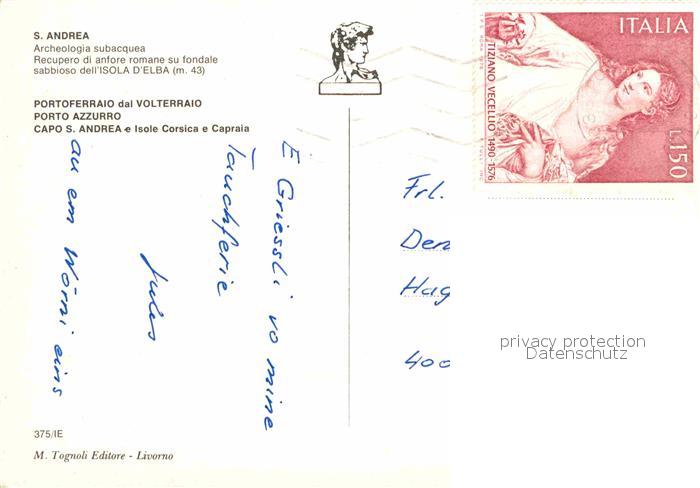 S. ANDREA
Archeologia subacquea
Recupero di anfore romane su fondale
sabbioso dell'ISOLA D'ELBA (m. 43)
PORTOFERRAIO dal VOLTERRAIO
PORTO AZZURRO
CAPO S. ANDREA e Isole Corsica e Capraia
E Griessli vo mine
Tauchferie
Jules
au em Wörni eins
375/IE
M. Tognoli Editore - Livorno
ITALIA
TIZIANO VECELLIO 1490-1576
L.150
Frl.
Den
Hag
400
privacy protection
Datenschutz